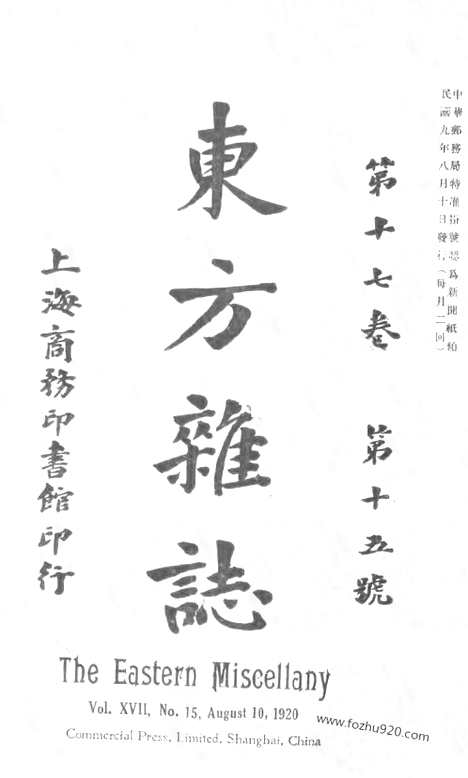 中華郵務局特准掛號認爲新聞紙類
民國九年八月十日發行(每月二回)
第十七卷 第十五號
東方雜誌
上海商務印書館印行
The Eastern Miscellany
Vol. XVII, No. 15, August 10, 1920
Commercial Press, Limited, Shanghai, China
www.fozhu920.com